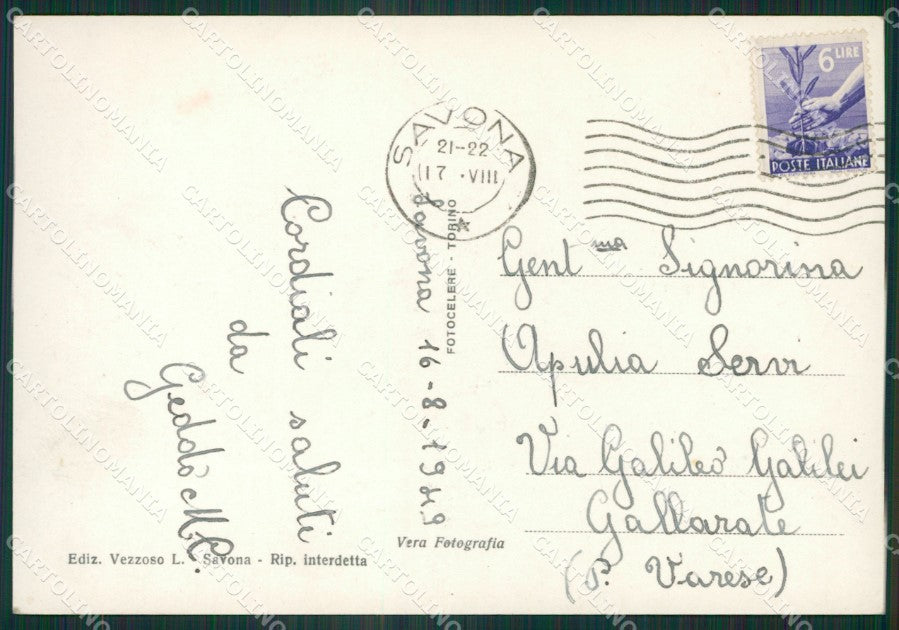 6 LIRE
POSTE ITALIANE
SAVONA
21-22
17 . VIII
Savona 16-8-1949
FOTOCELERE - TORINO
Cordiali saluti
da
Geddò M.C.
Gent ma Signorina
Apulia Servi
Via Galileo Galilei
Gallarate
(P. Varese)
Vera Fotografia
Ediz. Vezzoso L. - Savona - Rip. interdetta
CARTOLINOMANIA